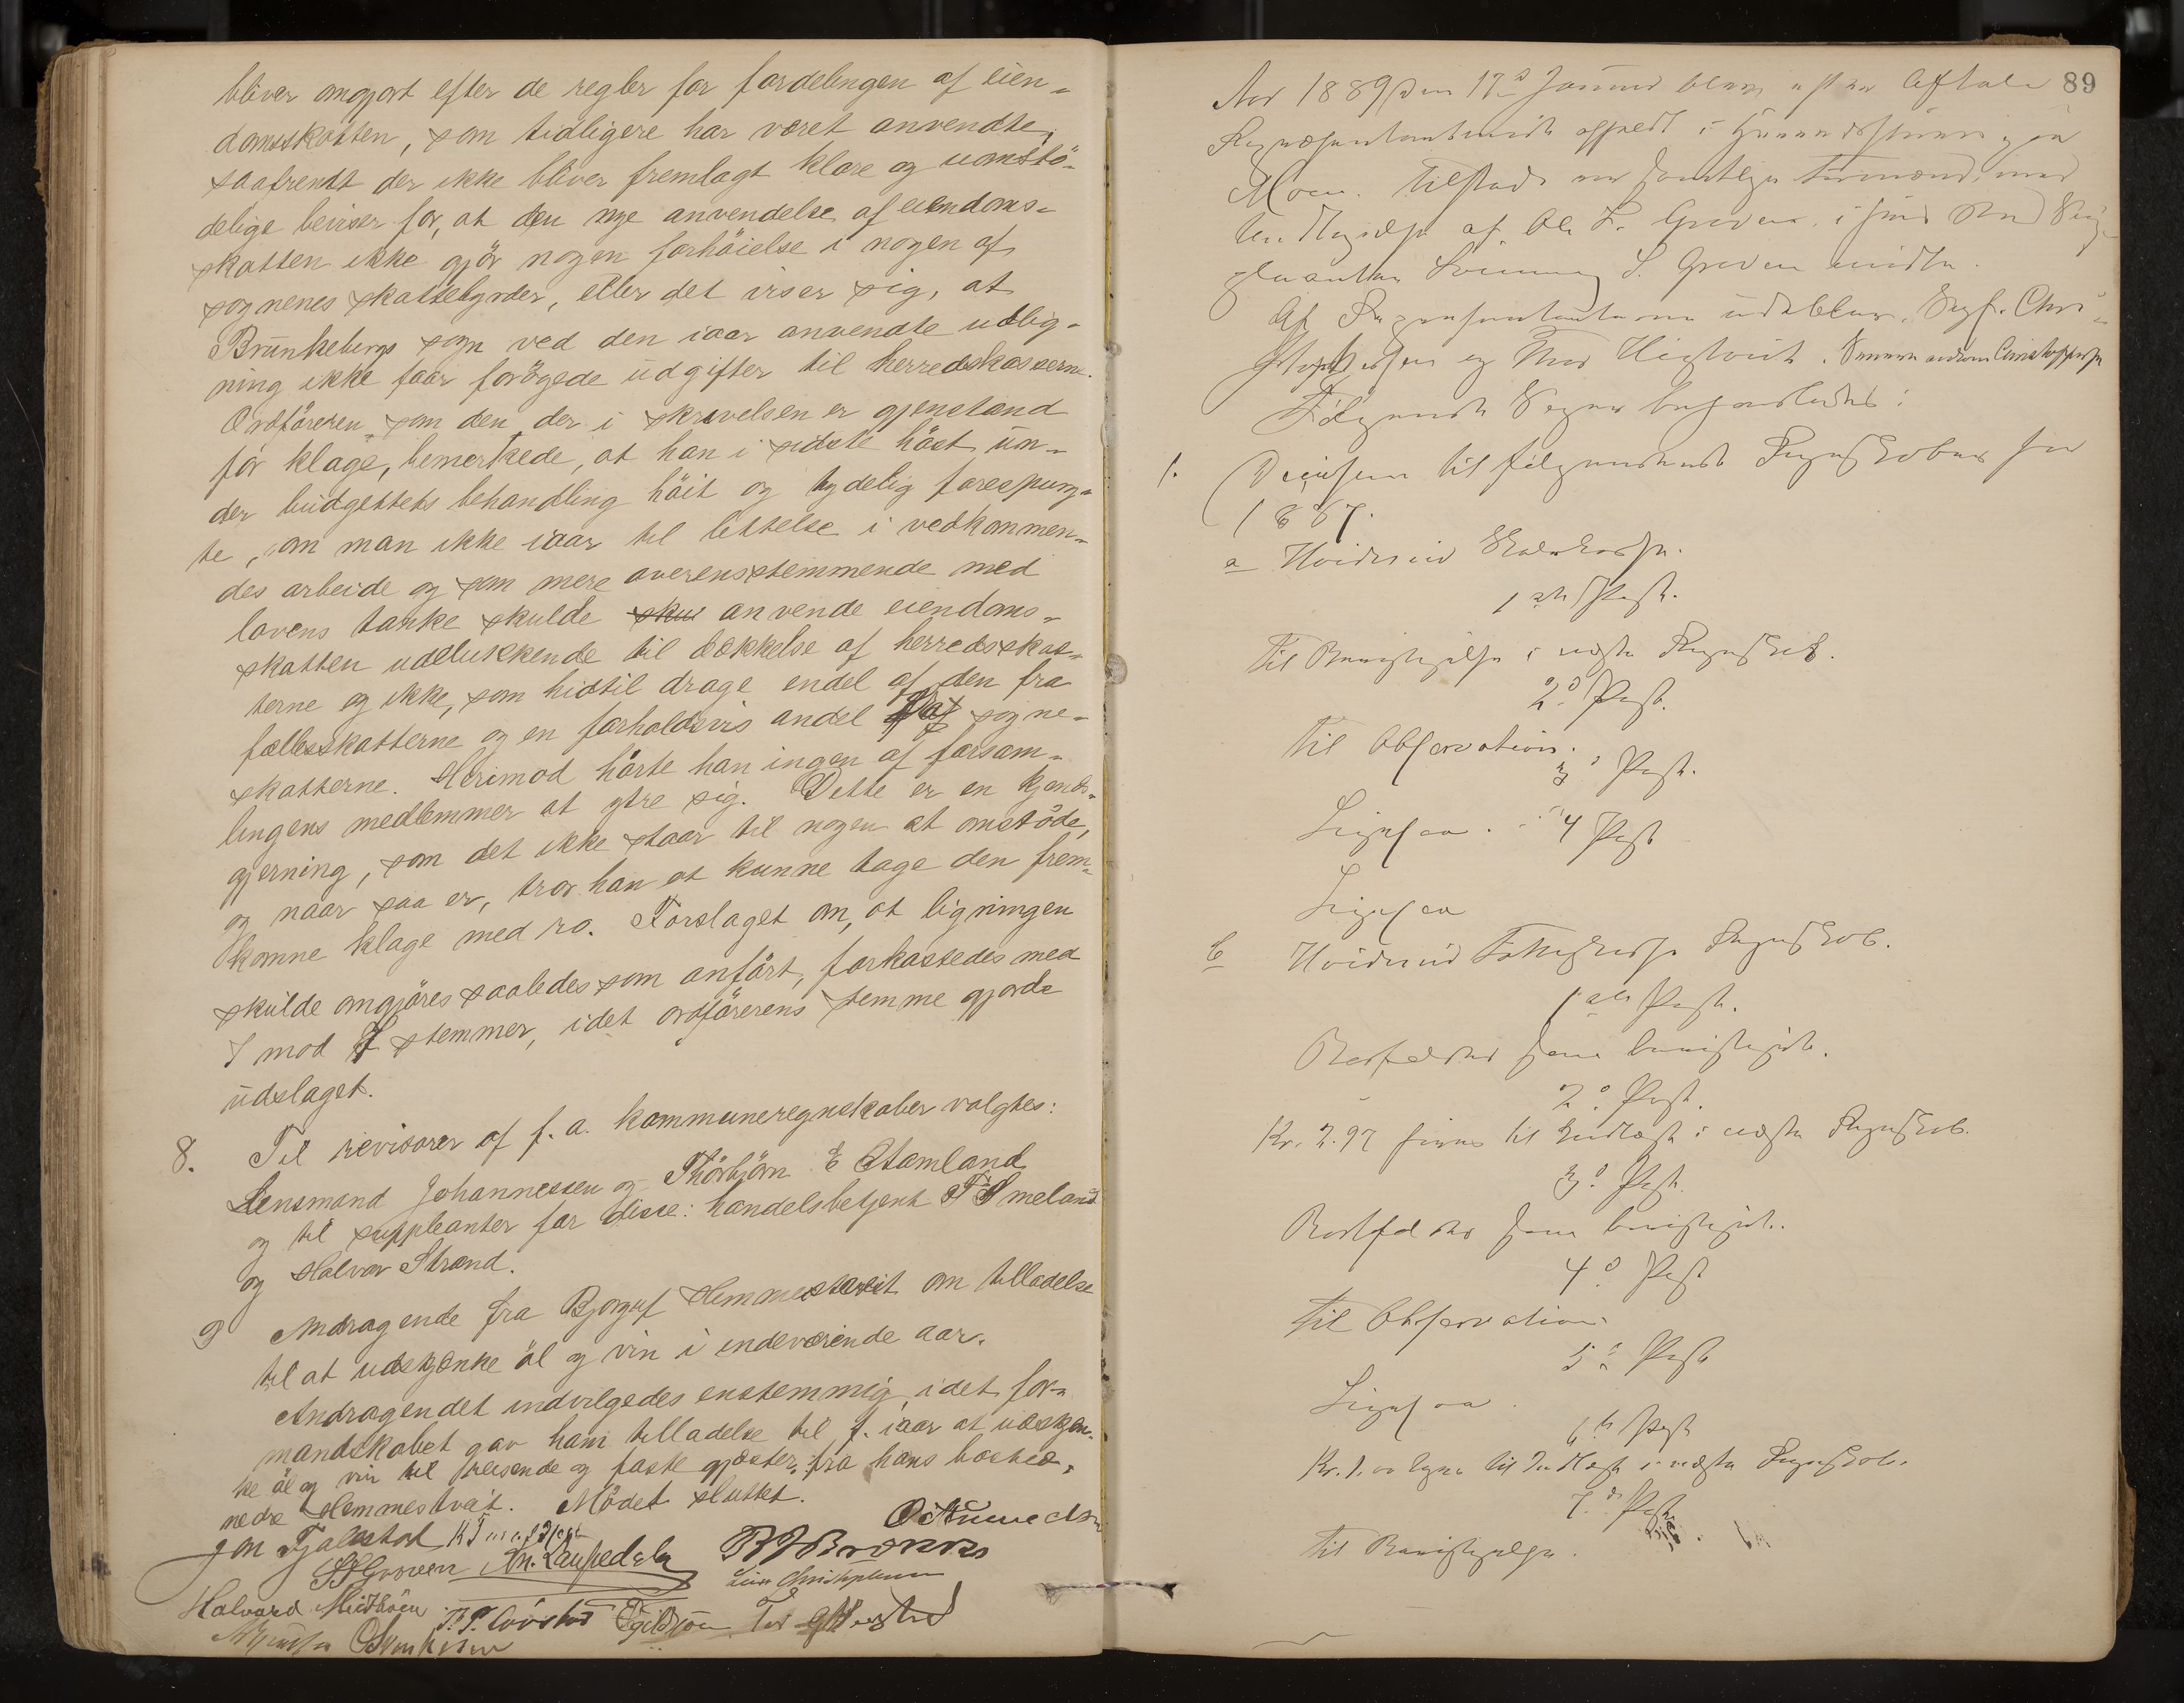 bliver omgjort efter de regler for fordelingen af eien-
domsskatten, som tidligere har været anvendte,
saafremt der ikke bliver fremlagt klare og uomstö-
delige beviser for, at den nye anvendelse af eiendoms-
skatten ikke gjör nogen forhöielse i nogen af
sognenes skattebyrder, eller det viser sig, at
Brunkebergs sogn ved den iaar anvendte udlig-
ning ikke faar forögede udgifter til herredskasserne.
Ordföreren, som den, der i skrivelsen er gjenstand
for klage, bemerkede, at han i sidste höst un-
der budgettets behandling höit og tydelig forespurg-
te, om man ikke iaar til lettelse i vedkommen-
des arbeide og som mere overensstemmende med
lovens tanke skulde anvende eiendoms-
skatten udelukkende til dækkelse af herredsskat-
terne og ikke, som hidtil drage endel af den fra
fællesskatterne og en forholdsvis andel af sogne-
skatterne. Herimod hörte han ingen af forsam-
lingens medlemmer at ytre sig. Dette er en kjends-
gjerning, som det ikke staar til nogen at omstöde,
og naar saa er, tror han at kunne tage den frem-
komne klage med ro. Forslaget om, at ligningen
skulde omgjöres saaledes som anfört, forkastedes med
mod stemmer, idet ordförerens stemme gjorde
udslaget.
8. Til revisorer af f. a. kommuneregnskaber valgtes:
Lensmand Johannessen og Thorbjörn Stamland
og til suppleanter for disse: handelsbetjent Smeland
og Halvor Strand.
9 Andragende fra Bjorguf Hemmestveit om tilladelse
til at udskjænke öl og vin i indeværende aar.
Andragendet indvilgedes enstemmig, idet for-
mandskabet gav ham tilladelse til f. iaar at udskjæn-
ke öl og vin til reisende og faste gjæster fra hans bosted,
nedre Hemmestvæit. Mödet sluttet.
Jon Tjalastad
Halvard Midtböen
89
Aar 1889 den 17de Januar blev efter Aftale
Repræsentantmöde afholdt i Herredsstuen paa
Moen. Tilstede var samtlige Formænd, med
Undtagelse af Ole L. Groven, i hvis Sted Sup-
pleanten S. Groven mödte.
Af Repræsentanterne udeblev Chri-
stophersen og Thor
Fölgende Sager behandledes:
1. Decision til fölgende Regnskaber for
1887.
a Hviteseid Skolekasse.
1ste Post.
Til Berigtigelse i næste Regnskab.
2den Post.
Til Observation.
3 Post.
Ligesaa. 4 Post
Ligesaa
b Hviteseid Fattigkasse Regnskab.
1ste Post.
Bortfalder som berigtiget.
2den Post.
Kr. 2.97 til Indtægt i næste Regnskab.
3die Post.
Bortfalder som berigtiget.
4de Post
Til Observation.
5te Post
Ligesaa.
6te Post
Kr. 1,00 til Indtægt i næste Regnskab.
7de Post
Til Berigtigelse.